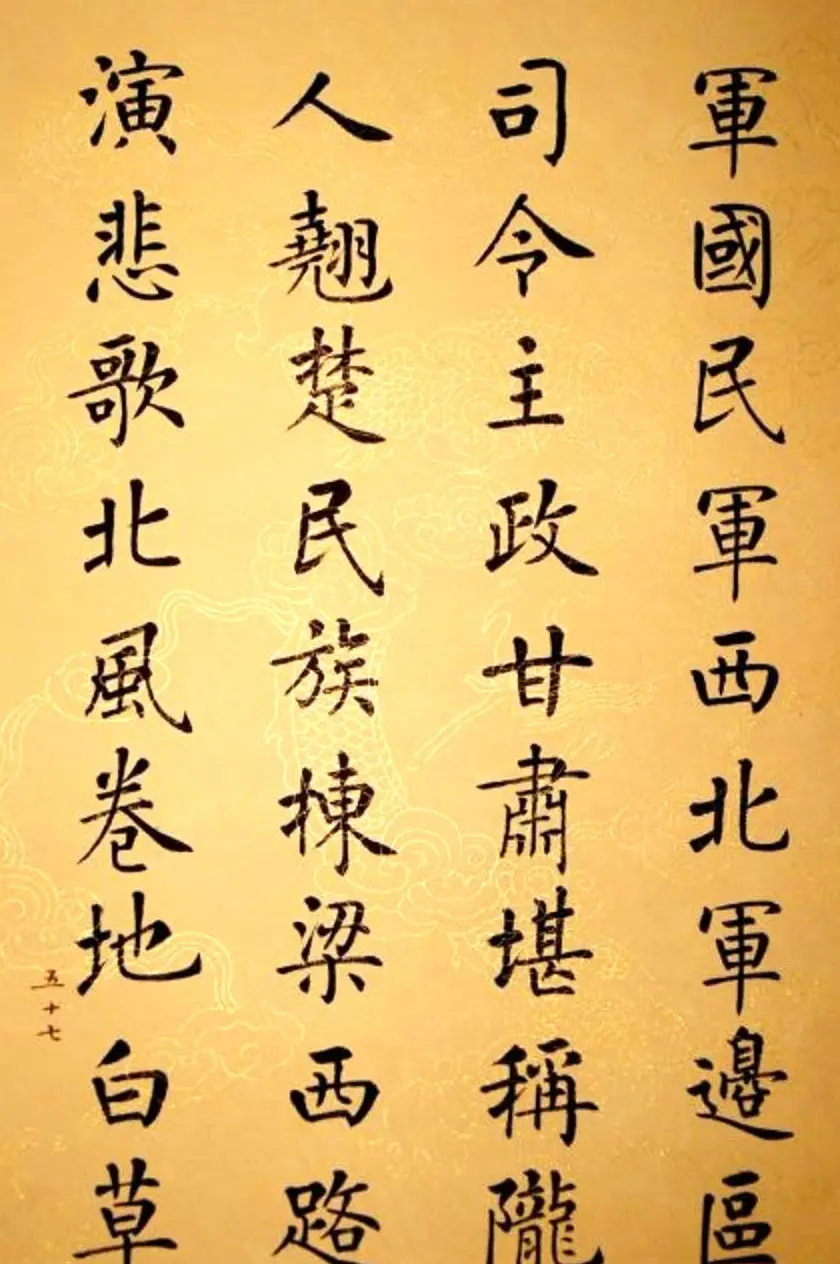 軍國民軍西北軍邊區
司令主政甘肅堪稱隴
人翹楚民族棟梁西路
演悲歌北風卷地白草
五十七